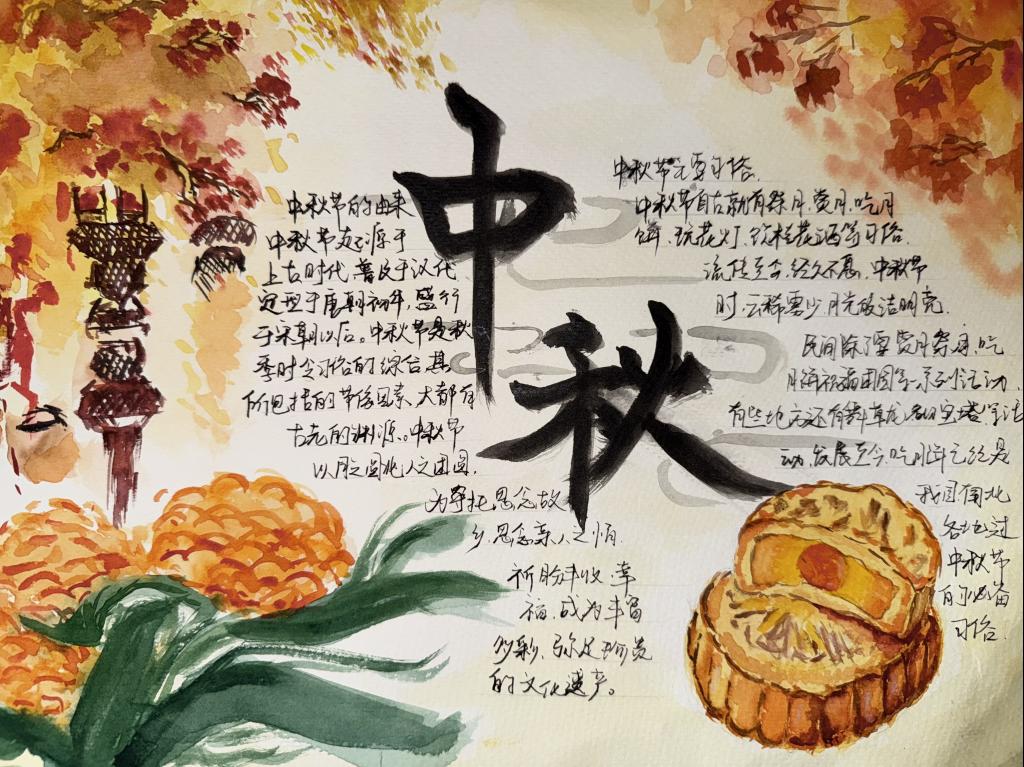 中秋
中秋节的由来
中秋节起源于
上古时代,普及于汉代
定型于唐朝初年,盛行
于宋朝以后。中秋节是秋
季时令习俗的综合,其
所包括的节俗因素,大都有
古老的渊源。中秋节
以月之圆兆人之团圆,
为寄托思念故
乡,思念亲人之情,
祈盼丰收、幸
福,成为丰富
多彩、弥足珍贵
的文化遗产。
中秋节主要习俗
中秋节自古就有祭月、赏月、吃月
饼、玩花灯、饮桂花酒等习俗,
流传至今,经久不息。中秋节
时,云稀雾少,月光皎洁明亮,
民间除了要赏月、祭月、吃
月饼祝福团圆等一系列活动,
有些地方还有舞草龙,砌宝塔等活
动,发展至今,吃月饼已经是
我国南北
各地过
中秋节
的必备
习俗。